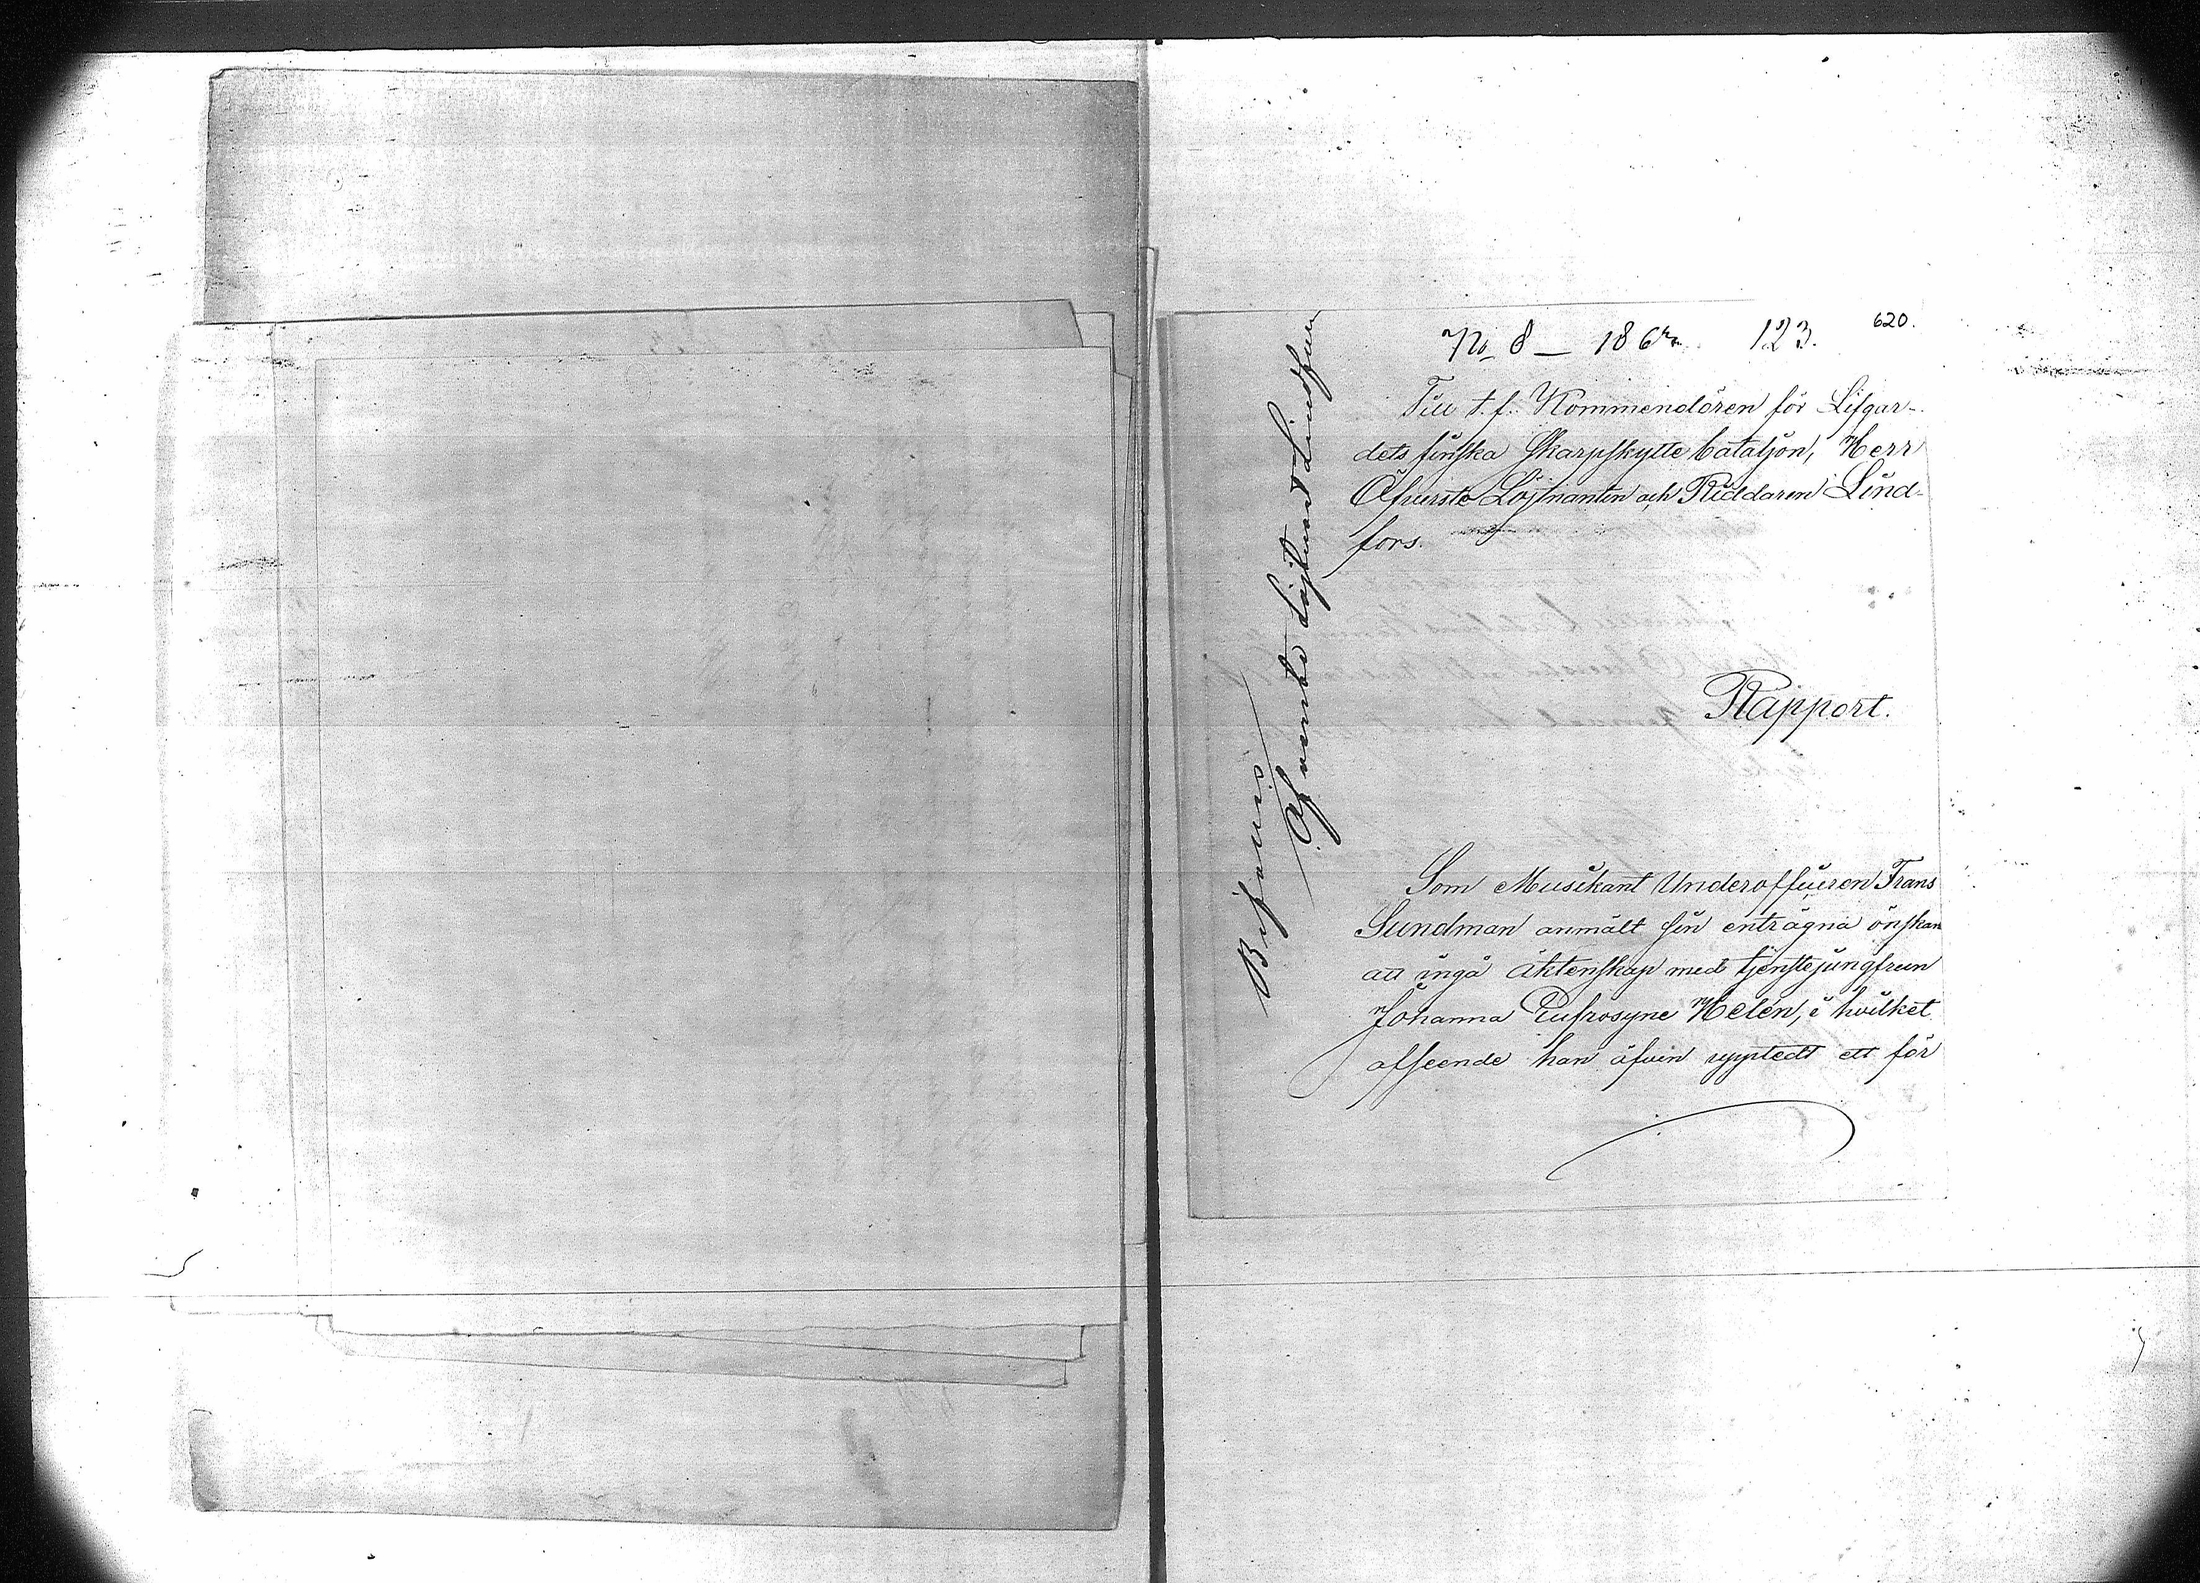 No 8 — 186 123. 620.
Till t. f. Kommendören för Lifgar-
dets finska Skarpskytte bataljon, Herr
Öfverste Löjtnanten och Riddaren Lind-
fors.
Rapport.
Som Musikant Underofficeren Frans
Sundman anmält sin enträgna önskan
att ingå äktenskap med tjenstejungfrun
Johanna Eufrosyne Helén, i hvilket
afseende han äfven upptedt ett för
Bifalles
Öfverste Löjtnant Lindfors